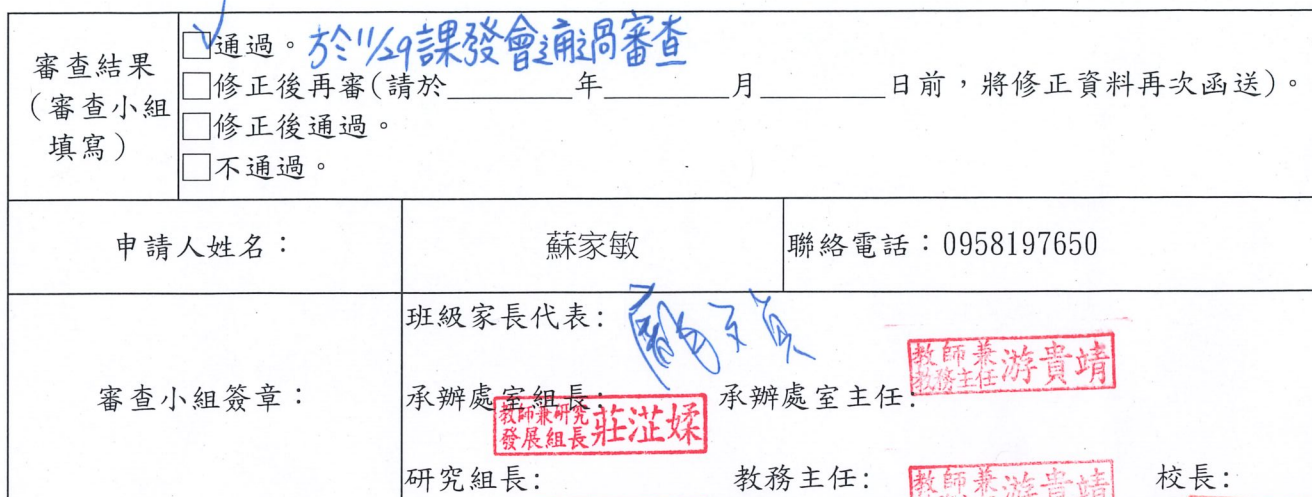 審查結果
(審查小組
填寫)
☑通過。於11/29課發會通過審查
□修正後再審(請於________年________月________日前，將修正資料再次函送)。
□修正後通過。
□不通過。
申請人姓名：
蘇家敏
聯絡電話：0958197650
審查小組簽章：
班級家長代表:
承辦處室組長:
教師兼研究
發展組長
承辦處室主任:
教師兼
教務主任
游貴靖
研究組長:
教務主任:
教師兼
游貴靖
校長: